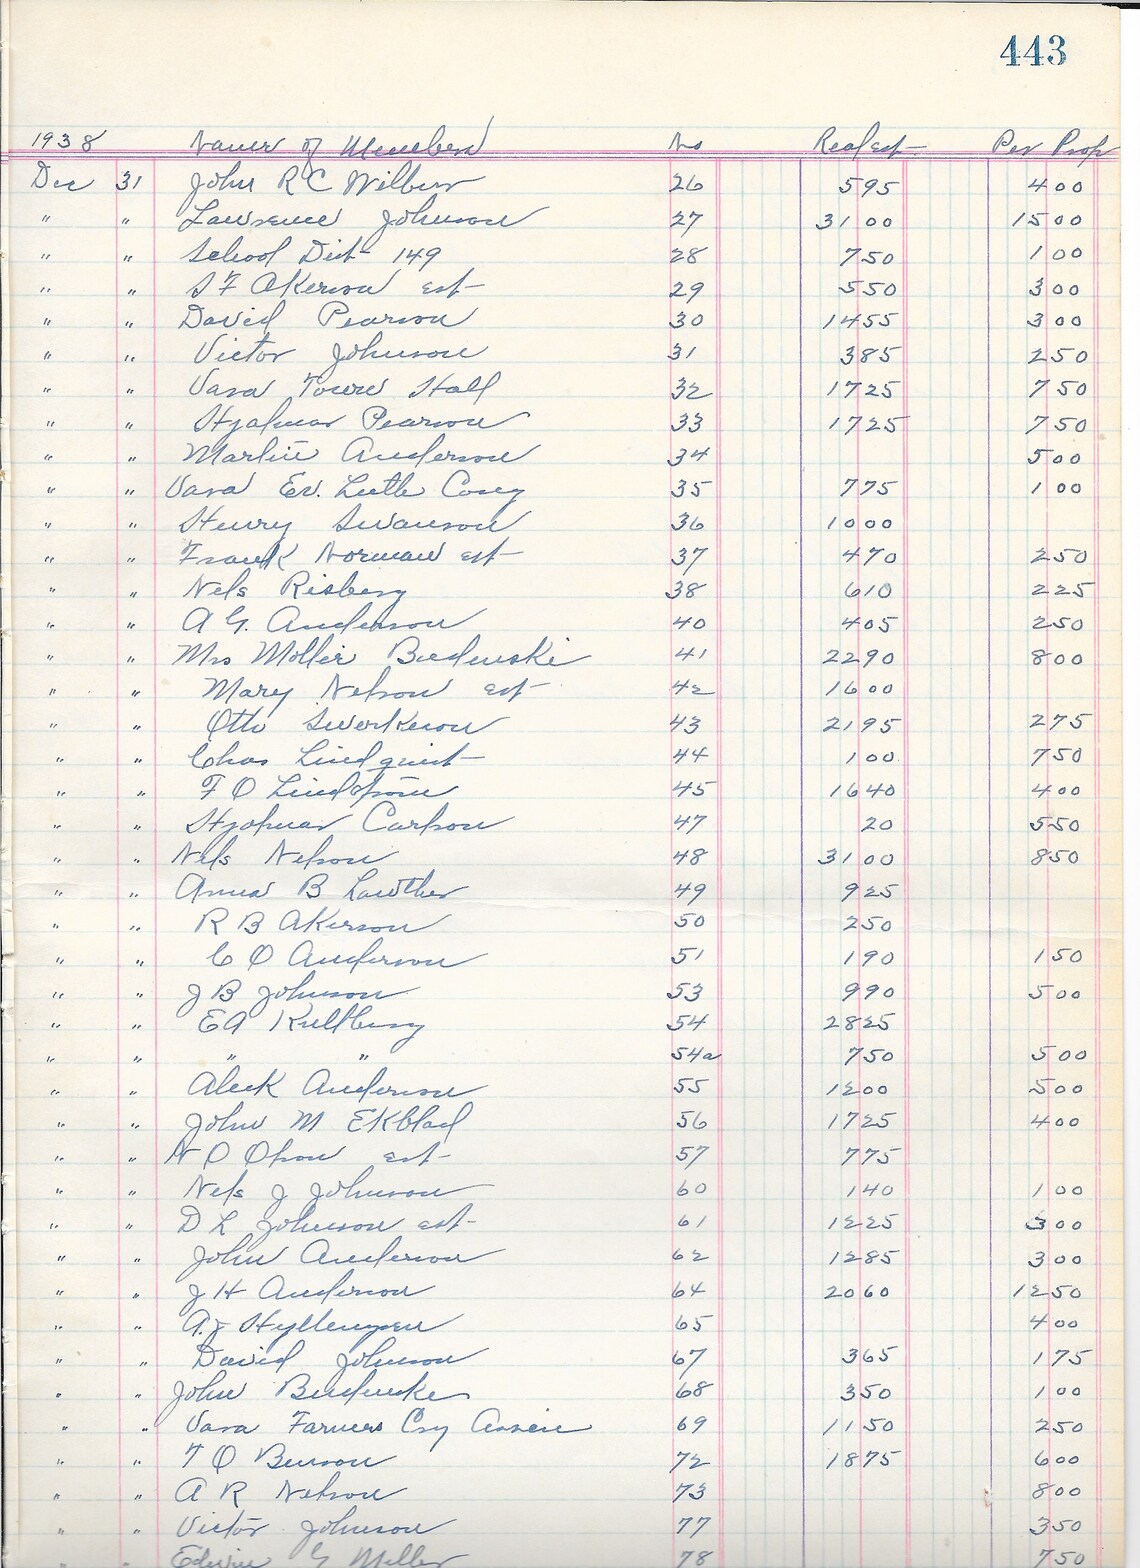 443
1938 Names of Members No Real est Per Prop
Dec 31 John R C Wilber 26 595 400
" " Lawrence Johnson 27 3100 1500
" " School Dist 149 28 750 100
" " S F Akerson est 29 550 300
" " David Pearson 30 1455 300
" " Victor Johnson 31 385 250
" " Vasa Town Hall 32 1725 750
" " Hjalmar Pearson 33 1725 750
" " Martin Anderson 34 500
" " Vasa Ev. Luth Cong 35 775 100
" " Henry Swanson 36 1000
" " Frank Norman est 37 470 250
" " Nels Risberg 38 610 225
" " A G. Anderson 40 405 250
" " Mrs Mollie 41 2290 800
" " Mary Nelson est 42 1600
" " Otto Swerkerson 43 2195 275
" " Chas Lindquist 44 100 750
" " F O Lindstrom 45 1640 400
" " Hjalmar Carlson 47 20 550
" " Nels Nelson 48 3100 850
" " Anna B Lawther 49 925
" " R B Akerson 50 250
" " C O Anderson 51 190 150
" " J B Johnson 53 990 500
" " EA Kullberg 54 2825
" " " " 54a 750 500
" " Aleck Anderson 55 1200 500
" " John M Ekblad 56 1725 400
" " N P Olson est 57 775
" " Nels J Johnson 60 140 100
" " D L Johnson est 61 1225 300
" " John Anderson 62 1285 300
" " J H Anderson 64 2060 1250
" " A.J 65 400
" " David Johnson 67 365 175
" " John 68 350 100
" " Vasa Farmers Cry 69 1150 250
" " T O Benson 72 1875 600
" " A R Nelson 73 800
" " Victor Johnson 77 350
" " Edwin G Miller 78 750